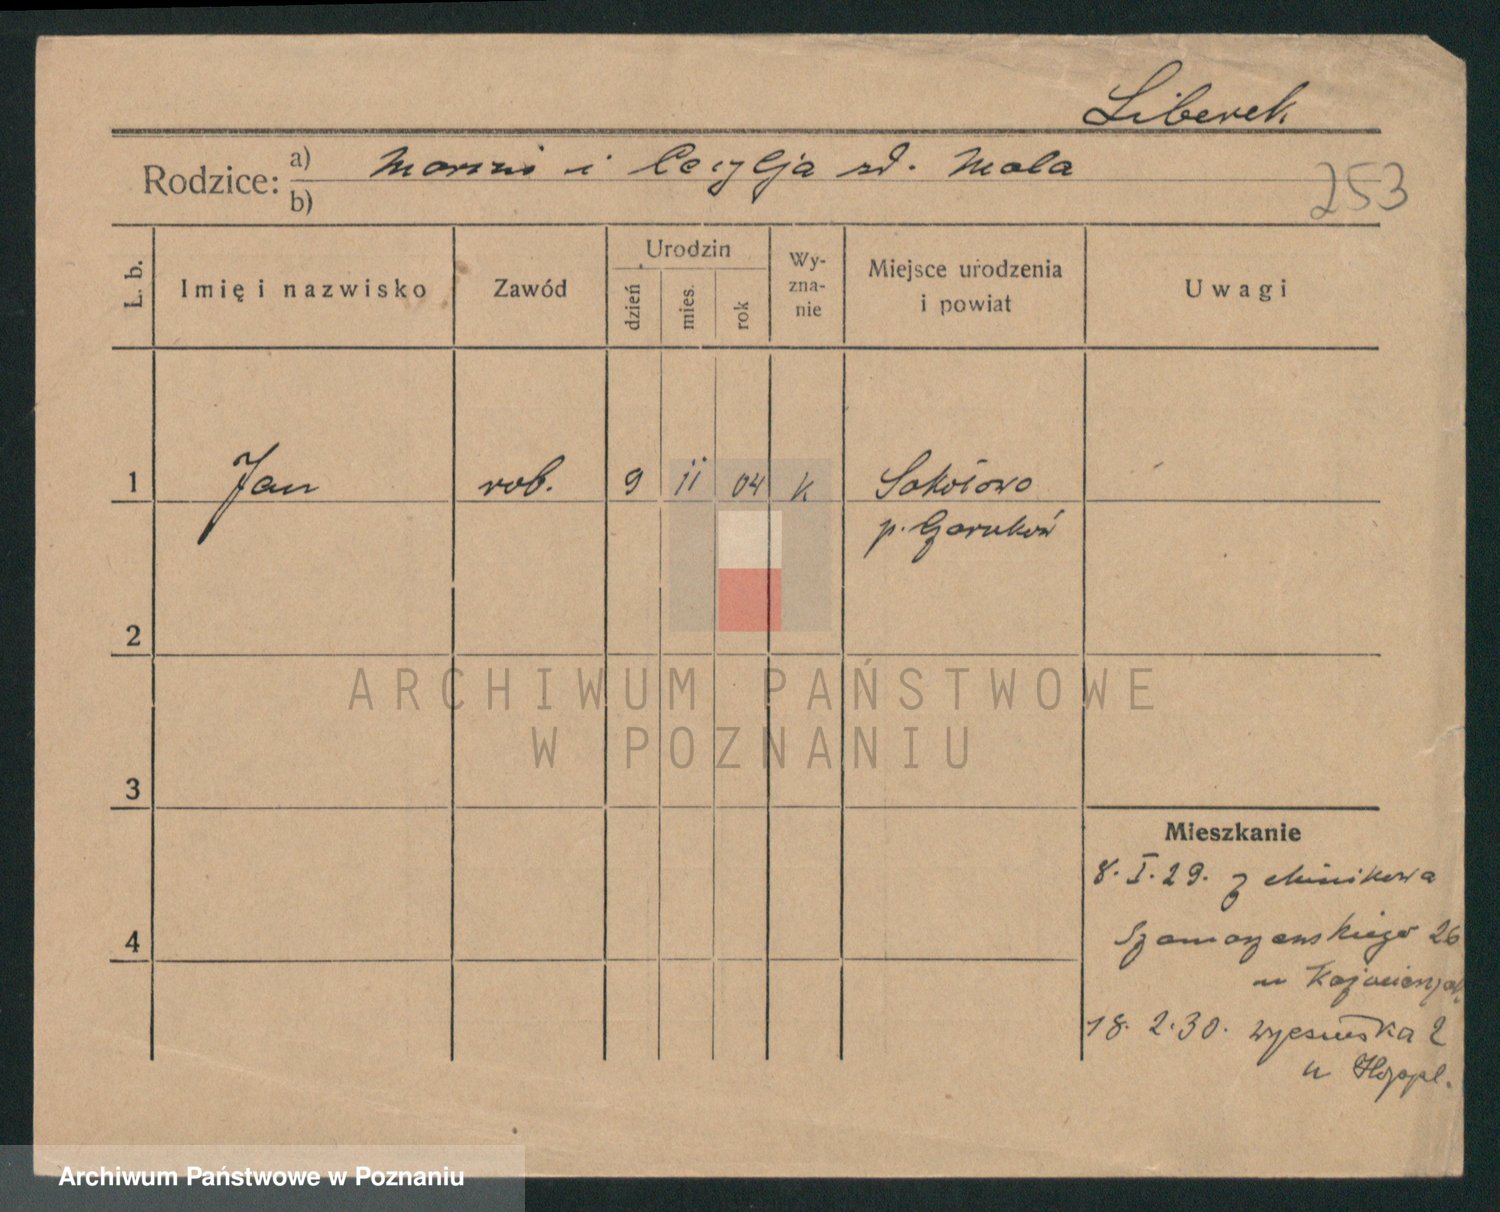 Liberek
Rodzice: a) Marcin i Cecylja zd. Mala
b)
253
L. b.
Imię i nazwisko
Zawód
Urodzin
dzień
mies.
rok
Wy-
zna-
nie
Miejsce urodzenia
i powiat
Uwagi
1 Jan rob. 9 11 04 k Sokołowo
p. Czarnków
2
3
4
Mieszkanie
8. I. 29. z
26
u
18. 2. 30. 2
u
ARCHIWUM PAŃSTWOWE
W POZNANIU
Archiwum Państwowe w Poznaniu